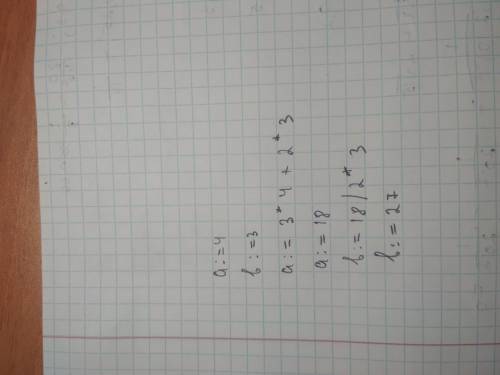 a:=4
b:=3
a:= 3*4+2*3
a:=18
b:=18/2*3
b:=27